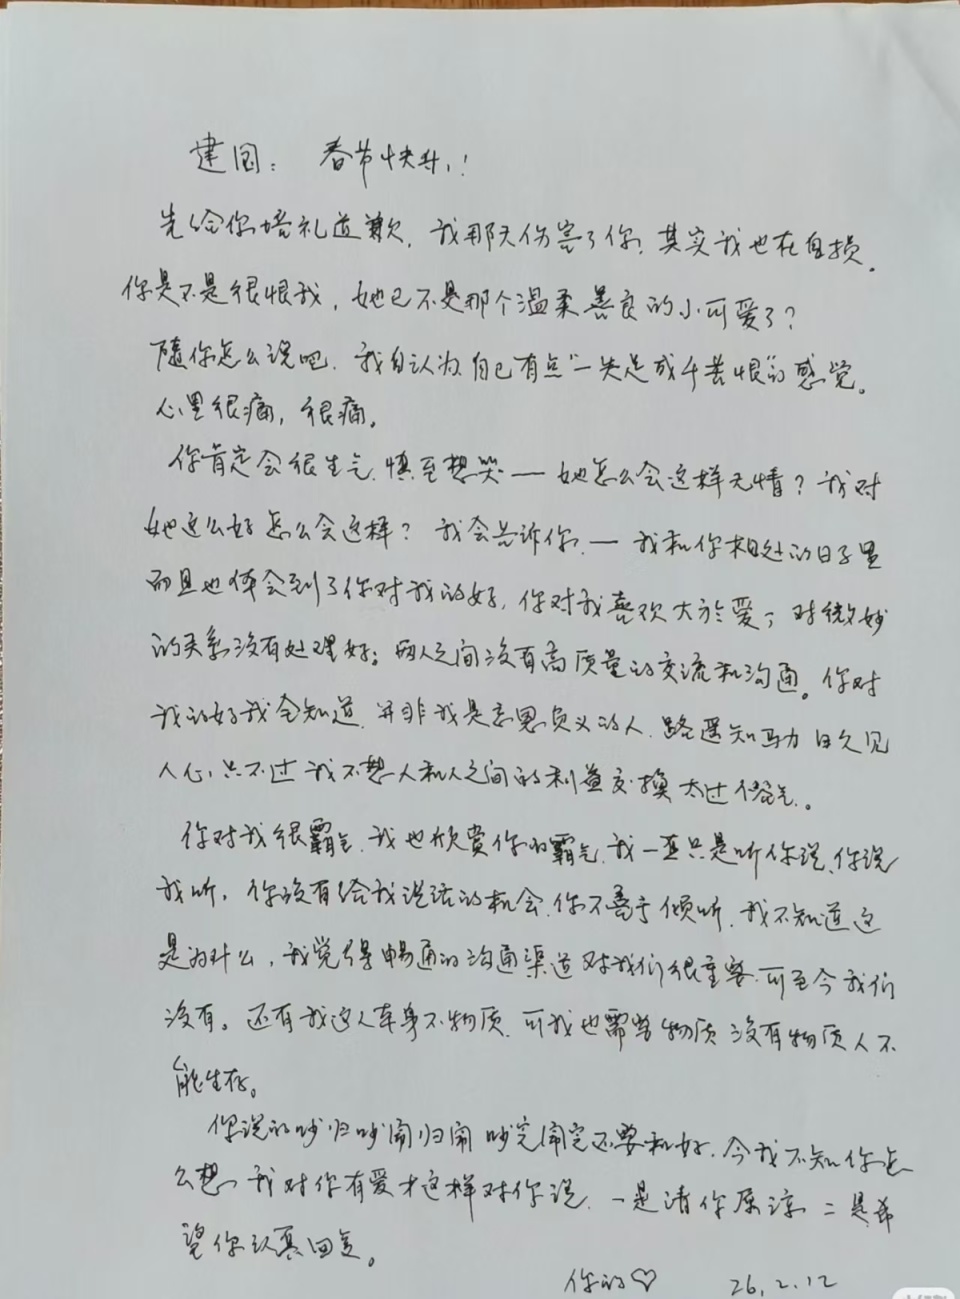 建国： 春节快乐！
先给你赔礼道歉，我那天伤害了你，其实我也在自损。
你是不是很恨我，她已不是那个温柔善良的小可爱了？
随你怎么说吧，我自认为自己有点“一失足成千苦恨”的感觉。
心里很痛，很痛。
你肯定会很生气，慎至想哭——她怎么会这样无情？我对
她这么好怎么会这样？我会告诉你，—我和你相处的日子里
而且也体会到了你对我的好，你对我喜欢大於爱，对微妙
的关系没有处理好；两人之间没有高质量的交流和沟通。你对
我的好我全知道，并非我是忘恩负义的人，路遥知马力日久见
人心，只不过我不想人和人之间的利益交换太过俗气。
你对我很霸气，我也欣赏你的霸气，我一直只是听你说，你说
我听，你没有给我说话的机会，你不善于倾听，我不知道这
是为什么，我觉得畅通的沟通渠道对我们很重要，可至今我们
没有。还有我这人本身不物质，可我也需要物质没有物质人不
能生存。
你说的吵归吵闹归闹吵完闹完还要和好，今我不知你怎
么想，我对你有爱才这样对你说，一是请你原谅二是希
望你认真回复。
你的♡ 26.2.12